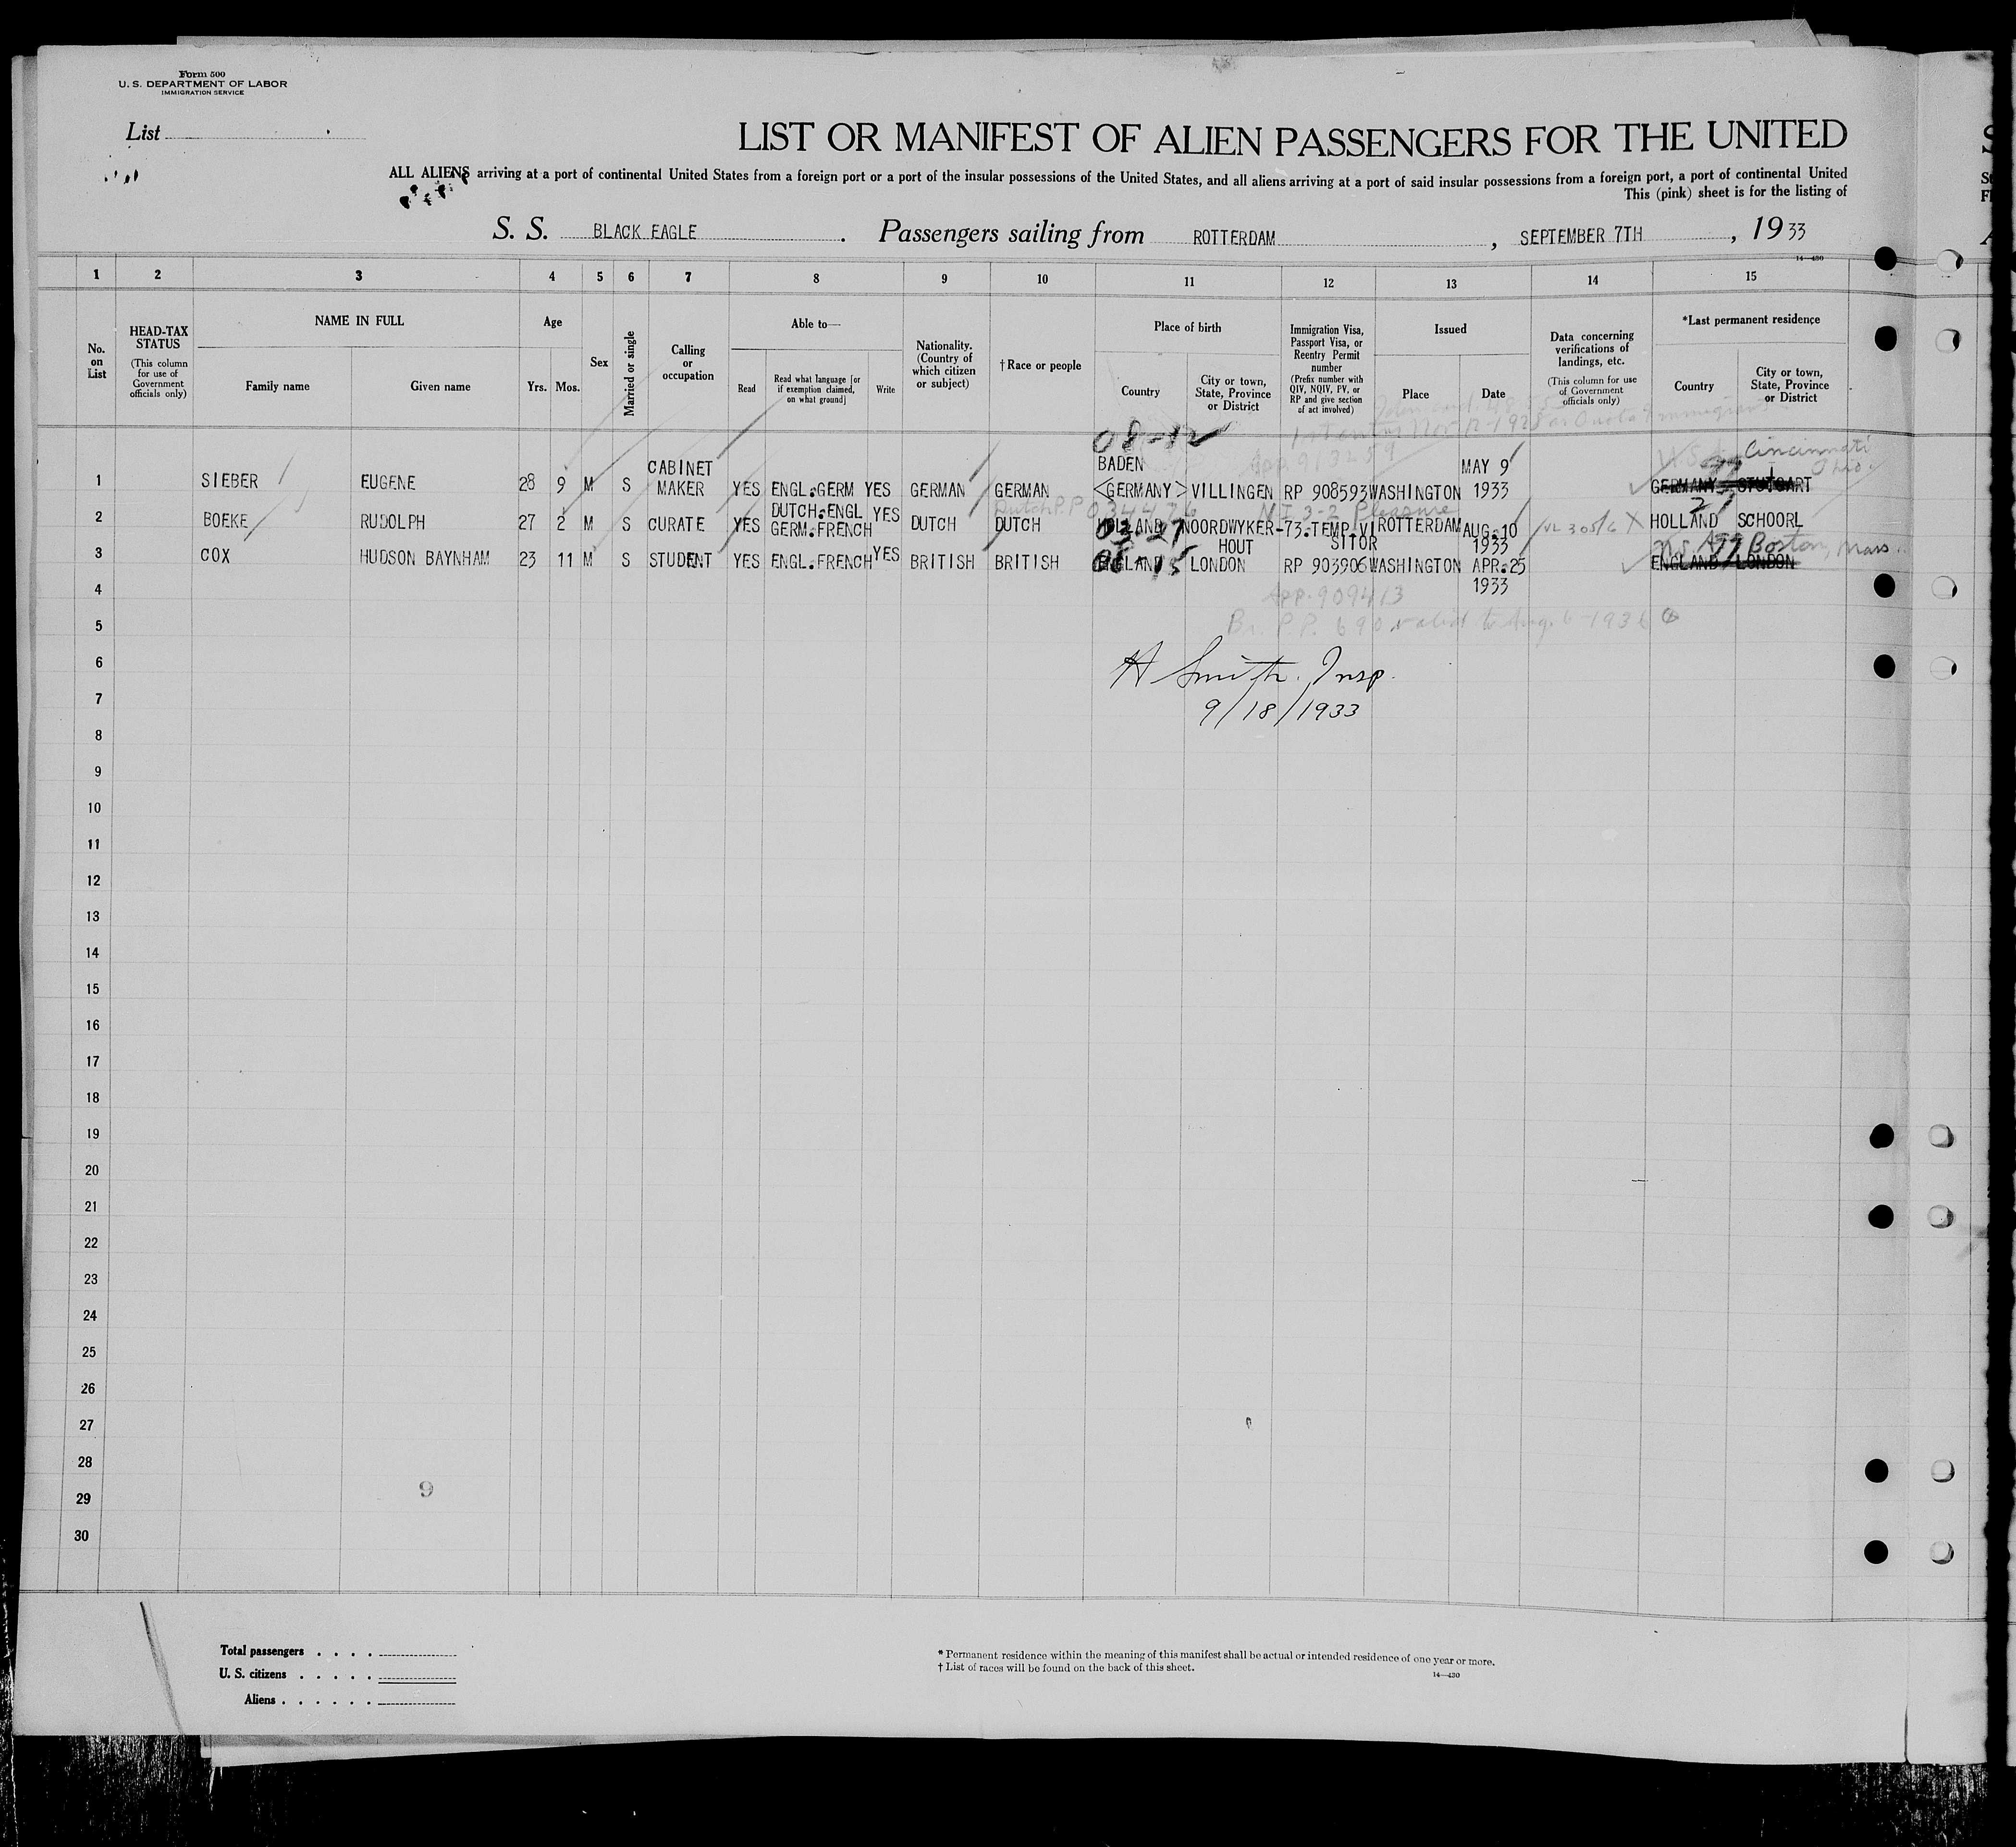 Form 500
U. S. DEPARTMENT OF LABOR
IMMIGRATION SERVICE
List
LIST OR MANIFEST OF ALIEN PASSENGERS FOR THE UNITED
ALL ALIENS arriving at a port of continental United States from a foreign port or a port of the insular possessions of the United States, and all aliens arriving at a port of said insular possessions from a foreign port, a port of continental United
This (pink) sheet is for the listing of
S. S. BLACK EAGLE . Passengers sailing from ROTTERDAM , SEPTEMBER 7TH , 19 33
14—430
1 2 3 4 5 6 7 8 9 10 11 12 13 14 15
No. on List
HEAD-TAX STATUS
(This column for use of Government officials only)
NAME IN FULL
Family name Given name
Age
Yrs. Mos.
Sex
Married or single
Calling or occupation
Able to—
Read
Read what language [or if exemption claimed, on what ground]
Write
Nationality. (Country of which citizen or subject)
†Race or people
Place of birth
Country
City or town, State, Province or District
Immigration Visa, Passport Visa, or Reentry Permit number
(Prefix number with QIV, NQIV, PV, or RP and give section of act involved)
Issued
Place Date
Data concerning verifications of landings, etc.
(This column for use of Government officials only)
*Last permanent residence
Country
City or town, State, Province or District
08-12
App 913259
U.S.A. Cincinnati Ohio.
1 SIEBER EUGENE 28 9 M S CABINET MAKER YES ENGL.GERM YES GERMAN GERMAN BADEN <GERMANY> VILLINGEN RP 908593 WASHINGTON MAY 9 1933 GERMANY STUTGART
Dutch P.P 034476 N I 3-2 Pleasure
2 BOEKE RUDOLPH 27 2 M S CURATE YES DUTCH.ENGL GERM.FRENCH YES DUTCH DUTCH HOLLAND NOORDWYKER-HOUT 73.TEMP.VISITOR ROTTERDAM AUG.10 1933 HOLLAND SCHOORL
U.S.A. Boston, Mass.
3 COX HUDSON BAYNHAM 23 11 M S STUDENT YES ENGL.FRENCH YES BRITISH BRITISH ENGLAND LONDON RP 903906 WASHINGTON APR.25 1933 ENGLAND LONDON
App. 909413
4
Br. P.P. 690 valid to Aug. 6-1936
5
6
H Smith. Insp.
7
9/18/1933
8
9
10
11
12
13
14
15
16
17
18
19
20
21
22
23
24
25
26
27
28
9
29
30
Total passengers . . . .
U. S. citizens . . . . .
Aliens . . . . . .
* Permanent residence within the meaning of this manifest shall be actual or intended residence of one year or more.
† List of races will be found on the back of this sheet.
14—430